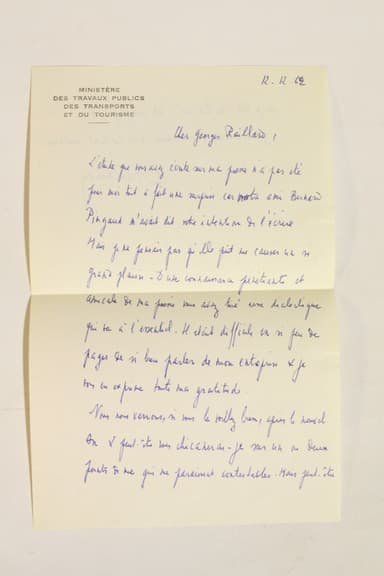 MINISTÈRE
DES TRAVAUX PUBLICS
DES TRANSPORTS
ET DU TOURISME
12.12.62
Cher Georges Raillard,
L'étude que vous avez écrite sur ma poésie n'a pas été
pour moi tout à fait une surprise car notre ami Bernard
Pingaud m'avait dit votre intention de l'écrire
Mais je ne pensais pas qu'elle pût me causer un si
grand plaisir - D'une connaissance pénétrante et
amicale de ma poésie vous avez tiré une dialectique
qui va à l'essentiel. Il était difficile en si peu de
pages de si bien parler de mon entreprise & je
vous en exprime toute ma gratitude
Nous nous verrons, si vous le voulez bien, après le nouvel
An & peut-être vous chicanerai-je sur un ou deux
points de vue qui me paraissent contestables. Mais peut-être